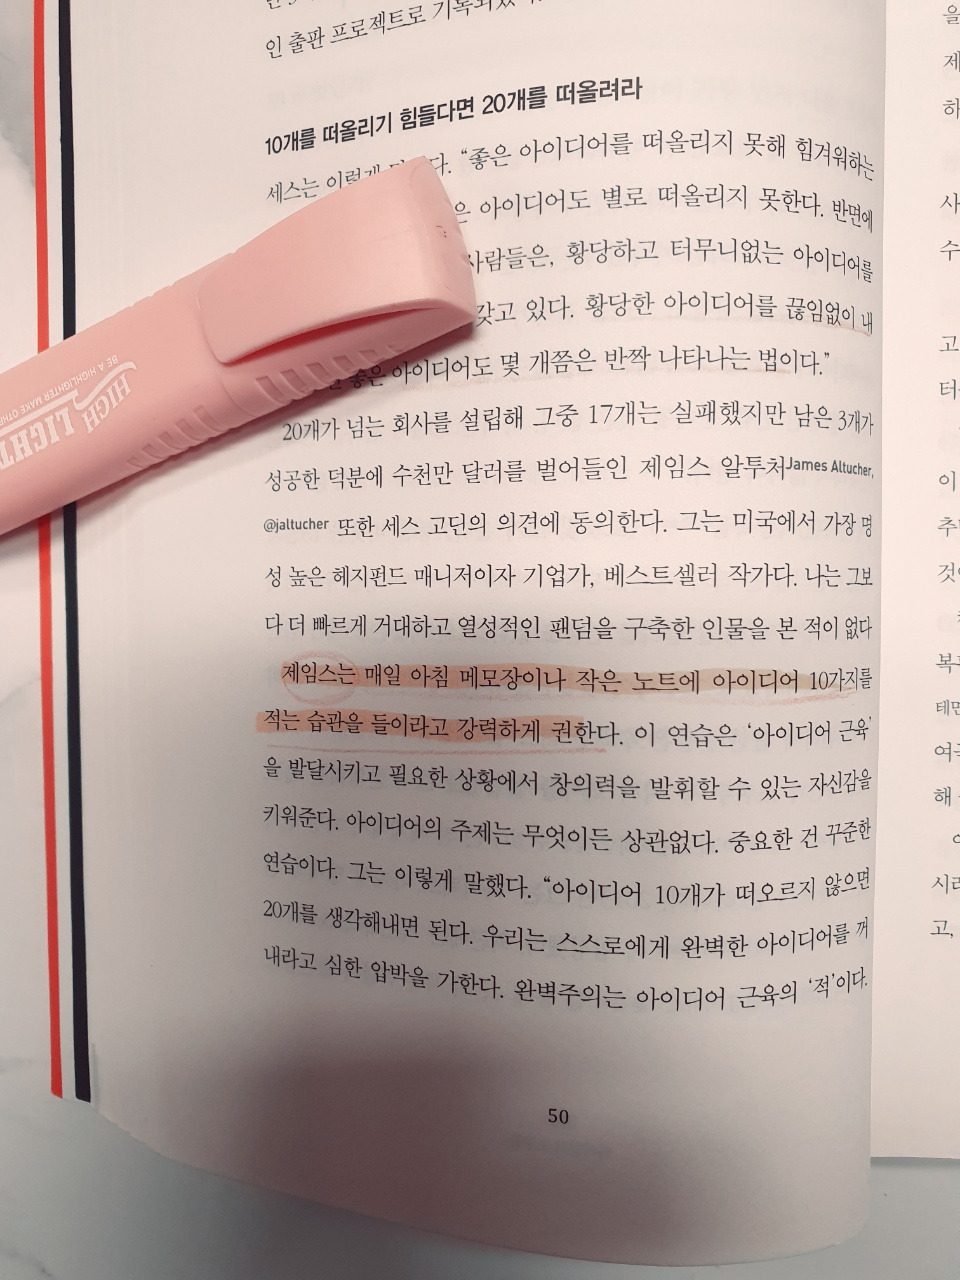 인 출판 프로젝트로 기록되었
10개를 떠올리기 힘들다면 20개를 떠올려라
세스는 이렇게 다. “좋은 아이디어를 떠올리지 못해 힘겨워하는
은 아이디어도 별로 떠올리지 못한다. 반면에
사람들은, 황당하고 터무니없는 아이디어를
갖고 있다. 황당한 아이디어를 끊임없이 내
좋은 아이디어도 몇 개쯤은 반짝 나타나는 법이다.”
20개가 넘는 회사를 설립해 그중 17개는 실패했지만 남은 3개가
성공한 덕분에 수천만 달러를 벌어들인 제임스 알투처James Altucher,
@jaltucher 또한 세스 고딘의 의견에 동의한다. 그는 미국에서 가장 명
성 높은 헤지펀드 매니저이자 기업가, 베스트셀러 작가다. 나는 그보
다 더 빠르게 거대하고 열성적인 팬덤을 구축한 인물을 본 적이 없다
제임스는 매일 아침 메모장이나 작은 노트에 아이디어 10가지를
적는 습관을 들이라고 강력하게 권한다. 이 연습은 ‘아이디어 근육’
을 발달시키고 필요한 상황에서 창의력을 발휘할 수 있는 자신감을
키워준다. 아이디어의 주제는 무엇이든 상관없다. 중요한 건 꾸준한
연습이다. 그는 이렇게 말했다. “아이디어 10개가 떠오르지 않으면
20개를 생각해내면 된다. 우리는 스스로에게 완벽한 아이디어를 꺼
내라고 심한 압박을 가한다. 완벽주의는 아이디어 근육의 ‘적’이다.
50
HIGH LIGHT
BE A HIGHLIGHTER MAKE OTHE
을
제
하
사
수
고
터
이
추
것
복
테면
여
해
시
고,